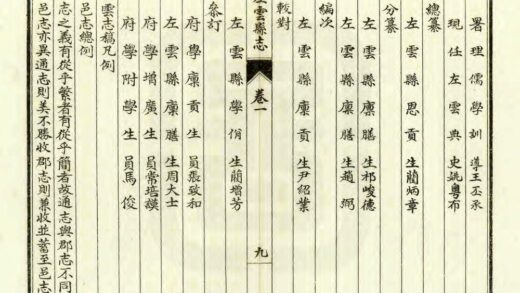 署理儒學訓導王丕承
現任左雲典史姚粵布
總纂
左雲縣恩貢生藺炳章
分纂
左雲縣廩膳生祁峻德
左雲縣廩膳生趙弼
編次
左雲縣廩貢生尹紹業
較對
左雲縣志 卷一 九
左雲縣學佾生藺增芳
參訂
府學廩貢生員張致和
左雲縣廩膳生周大士
府學增廣生員常培模
府學附學生員馬俊
雲志稿凡例
邑志總例
志之義有從乎繁者有從乎簡者故通志與郡志不同
邑志亦異通志則美不勝收郡志則兼收並蓄至邑志